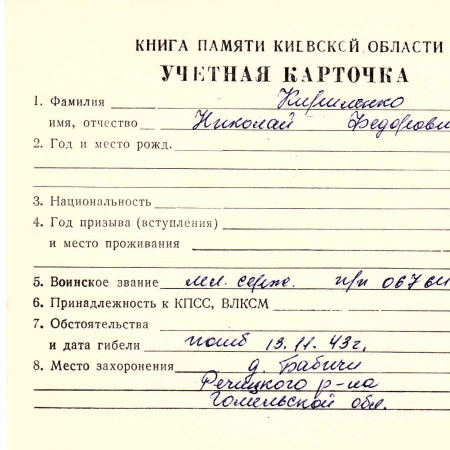 КНИГА ПАМЯТИ КИЕВСКОЙ ОБЛАСТИ
УЧЕТНАЯ КАРТОЧКА
1. Фамилия Кириленко
имя, отчество Николай Федорови
2. Год и место рожд.
3. Национальность
4. Год призыва (вступления)
и место проживания
5. Воинское звание мл. серж. п/п 067
6. Принадлежность к КПСС, ВЛКСМ
7. Обстоятельства
и дата гибели погиб 13.11.43г.
8. Место захоронения д. Бабичи
Речицкого р-на
Гомельской обл.